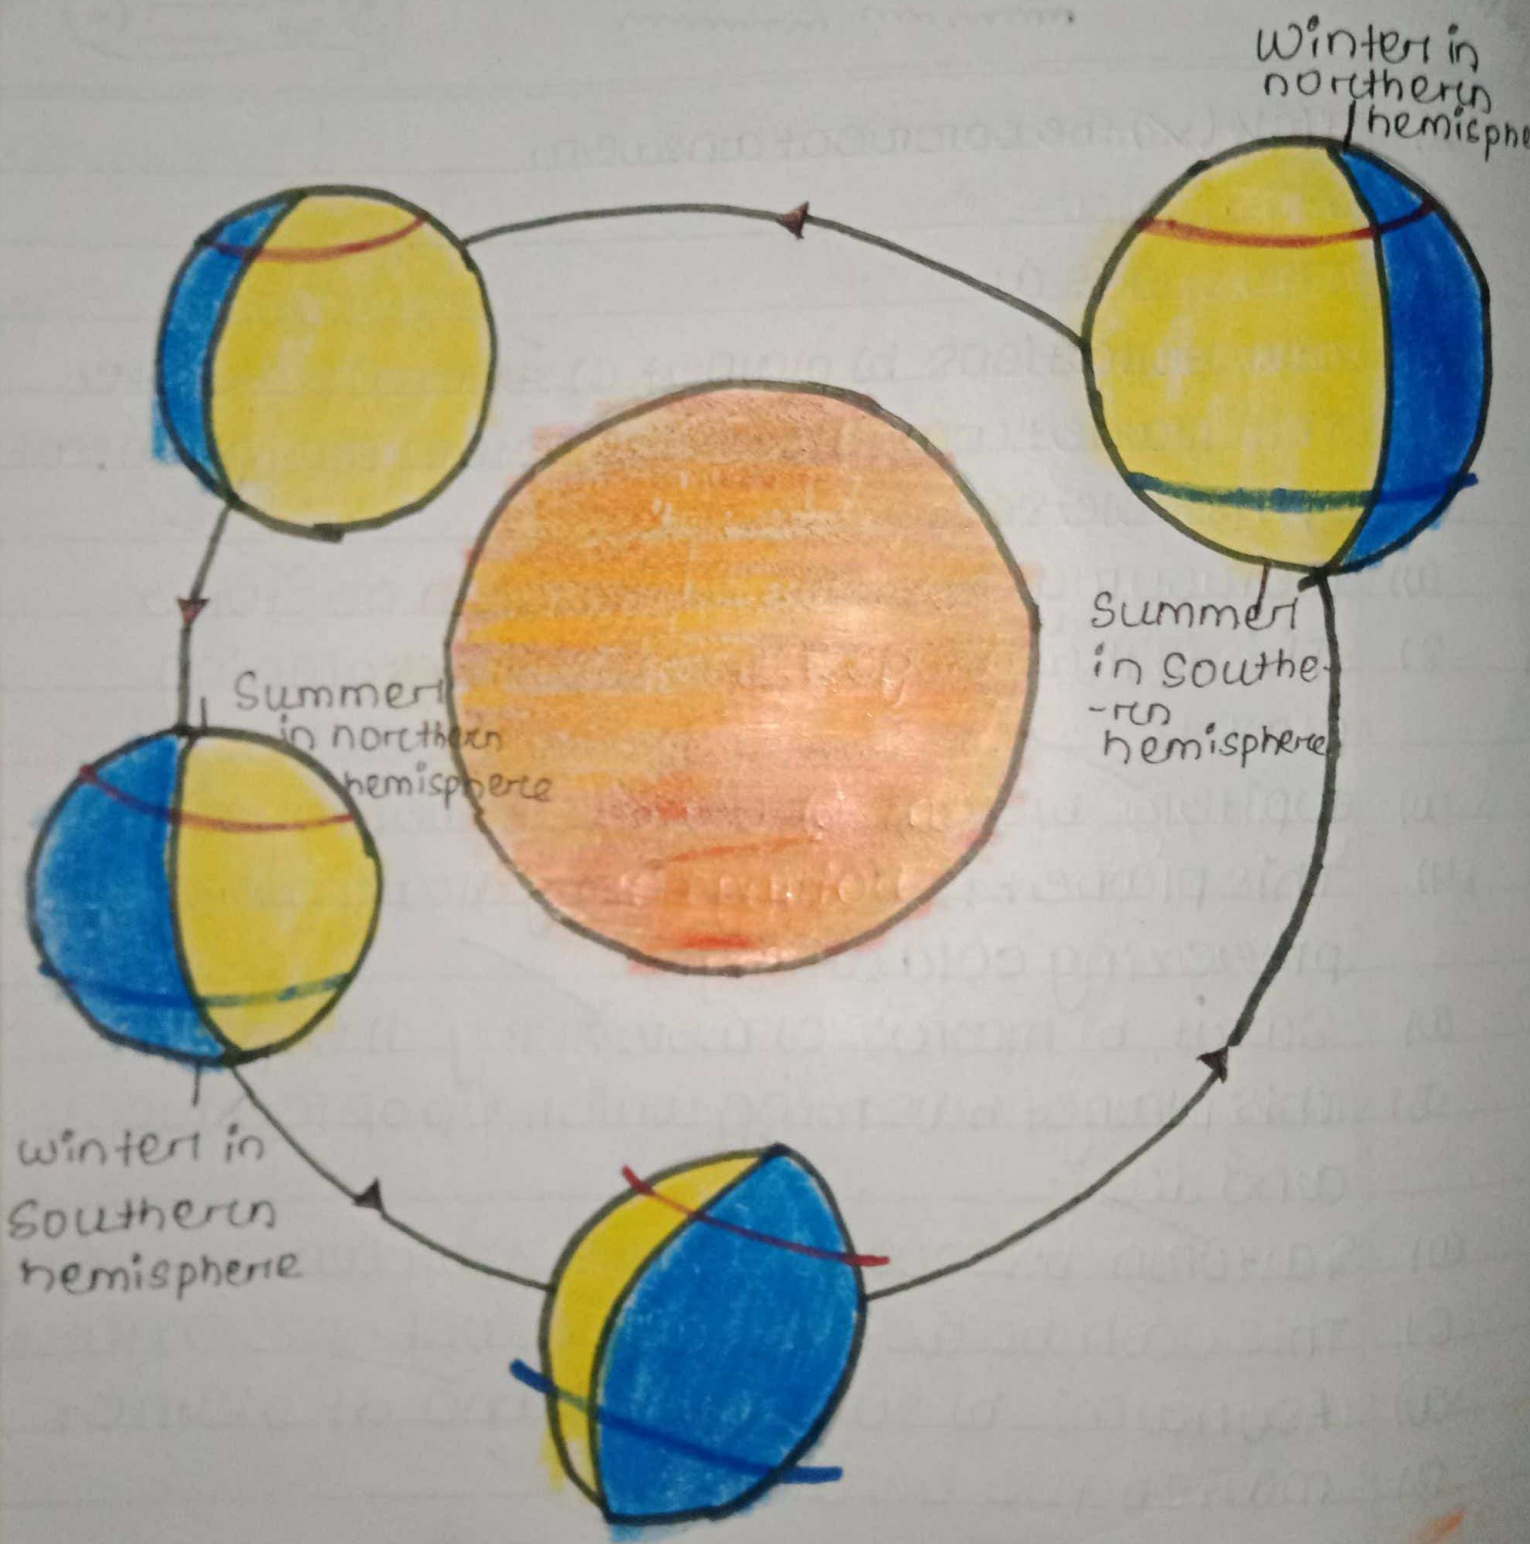 Winter in
northern
hemisphe
Summer
in Southe-
-rn
hemisphere
Summer
in northern
hemisphere
winter in
Southern
hemisphere